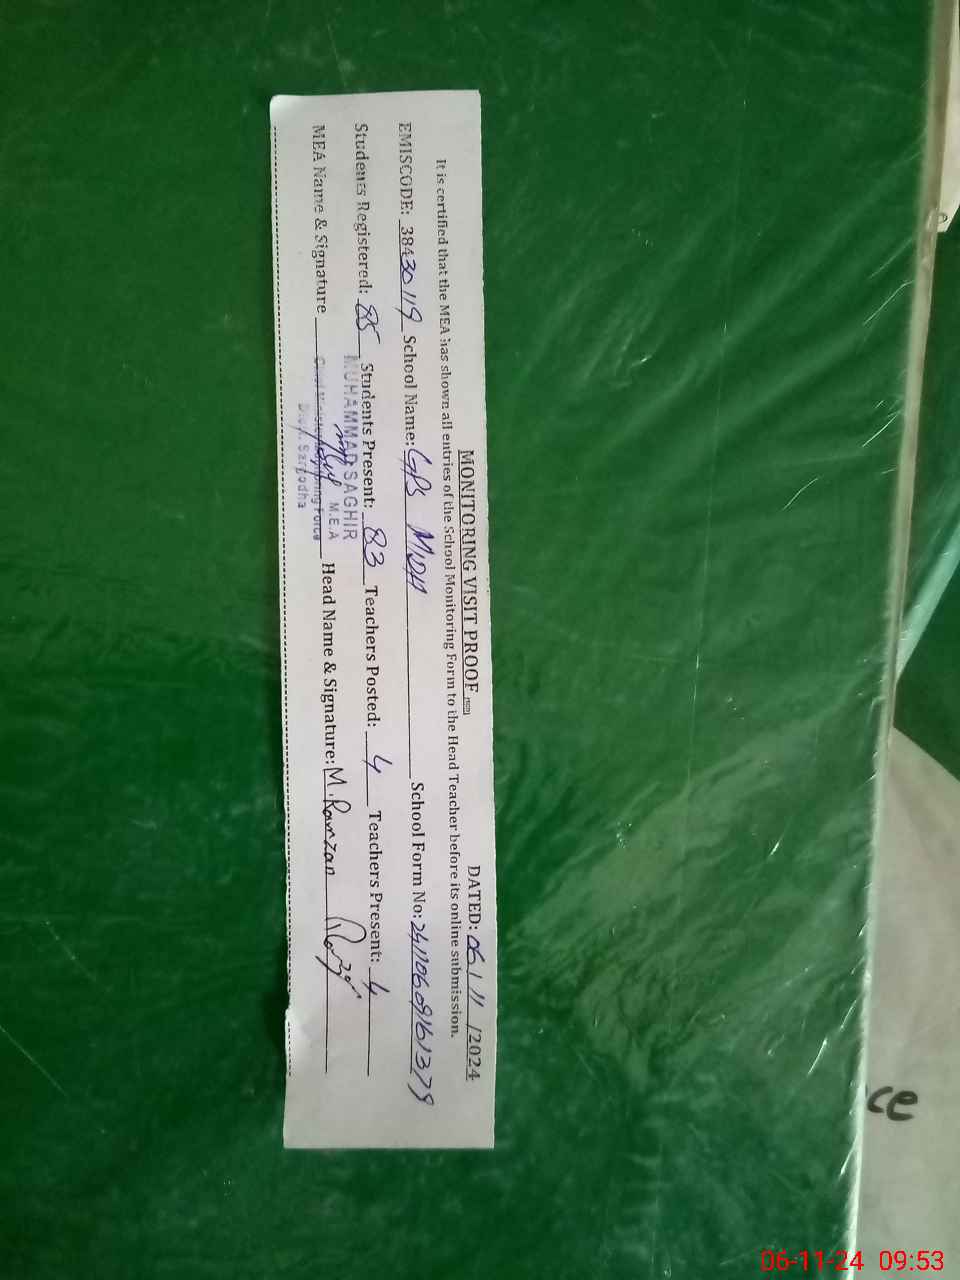 MONITORING VISIT PROOF
DATED: 06/11/2024
It is certified that the MEA has shown all entries of the School Monitoring Form to the Head Teacher before its online submission.
EMISCODE: 38430119 School Name: GPS School Form No: 24110609161379
Students Registered: 85 Students Present: 83 Teachers Posted: 4 Teachers Present: 4
MEA Name & Signature Head Name & Signature: M. Ramzan
MUHAMMAD SAGHIR
M.E.A
Monitoring Force
Sargodha
ce
06-11-24 09:53